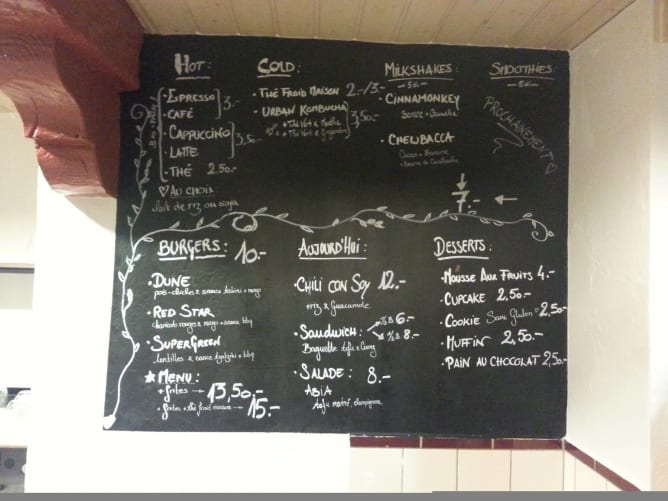 HOT:
ESPRESSO
CAFÉ
3.-
CAPPUCCINO
LATTE
3,50.-
THÉ 2.50.-
♡ AU CHOIX:
lait de riz ou soja
COLD:
THÉ FROID MAISON 2.-/3.-
URBAN KOMBUCHA
3,50.-
MILKSHAKES:
CINNAMONKEY
Banane + Cannelle
CHEWBACCA
Cacao + Banane
7.-
SMOOTHIES:
PROCHAINEMENT ♡
BURGERS: 10.-
DUNE
pois-chiches + sauce tahini + mayo
RED STAR
haricots rouges + mayo + sauce bbq
SUPERGREEN
lentilles + sauce tzatziki + bbq
★ MENU:
+ frites → 13,50.-
+ frites + thé froid maison → 15.-
AUJOURD'HUI:
CHILI CON SOY 12.-
+ riz & Guacamole
SANDWICH: 6.-
8.-
Baguette tofu & Curry
SALADE: 8.-
ABIA
Tofu mariné, champignons
DESSERTS:
MOUSSE AUX FRUITS 4.-
CUPCAKE 2,50.-
COOKIE Sans Gluten 2,50.-
MUFFIN 2,50.-
PAIN AU CHOCOLAT 2,50.-